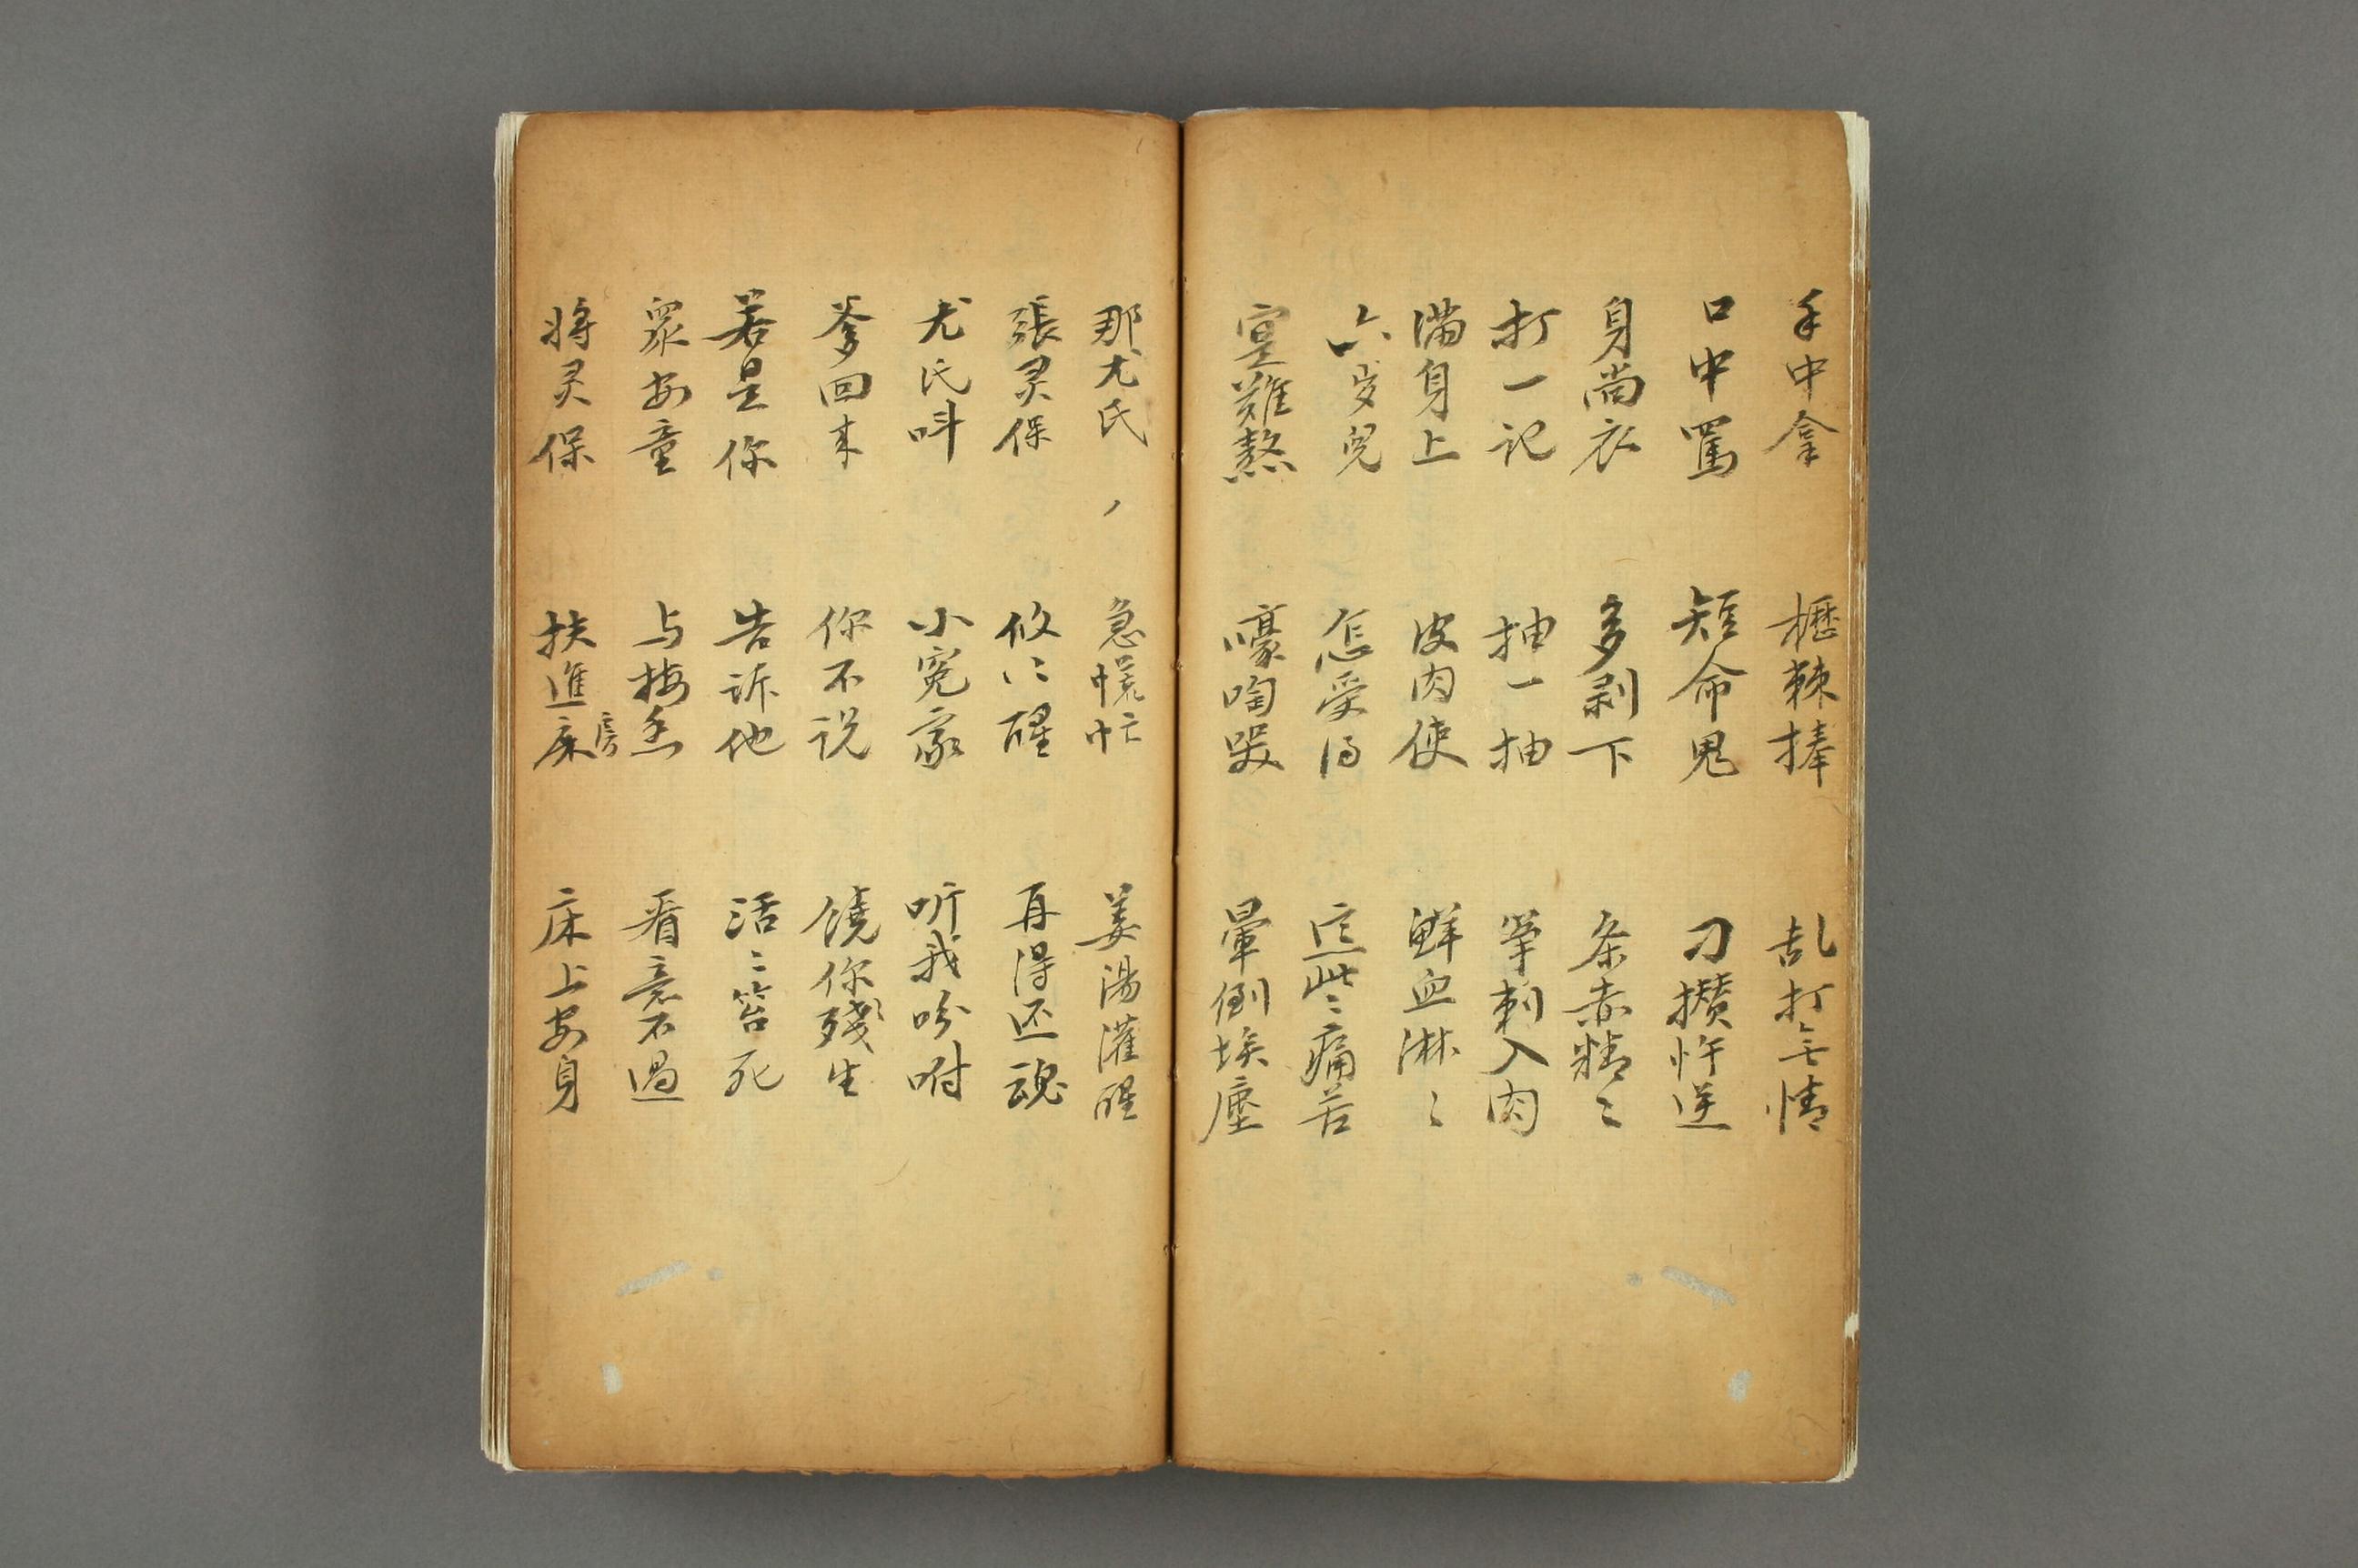 手中拿 櫪棘捧 乱打无情
口中罵 短命鬼 刀攢忤逆
身尚衣 多剥下 条赤精〻
打一记 抽一抽 筆刺入肉
滿身上 皮肉使 鮮血淋〻
六岁児 怎受得 這些〻痛苦
寔難熬 嚎啕哭 暈倒埃塵
那尤氏 急慌忙 姜湯灌醒
張灵保 攸〻醒 再得还魂
尤氏呌 小冤家 听我吩咐
爹回来 你不说 饒你殘生
若是你 告诉他 活〻笞死
眾安童 与梅香 看意不過
將灵保 扶進房床 床上安身